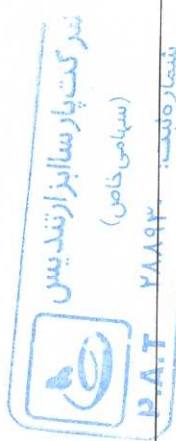 شرکت پارسا ابزار تندیس
(سهامی خاص)
شماره ثبت: ۲۸۸۸۹۲
P.A.T